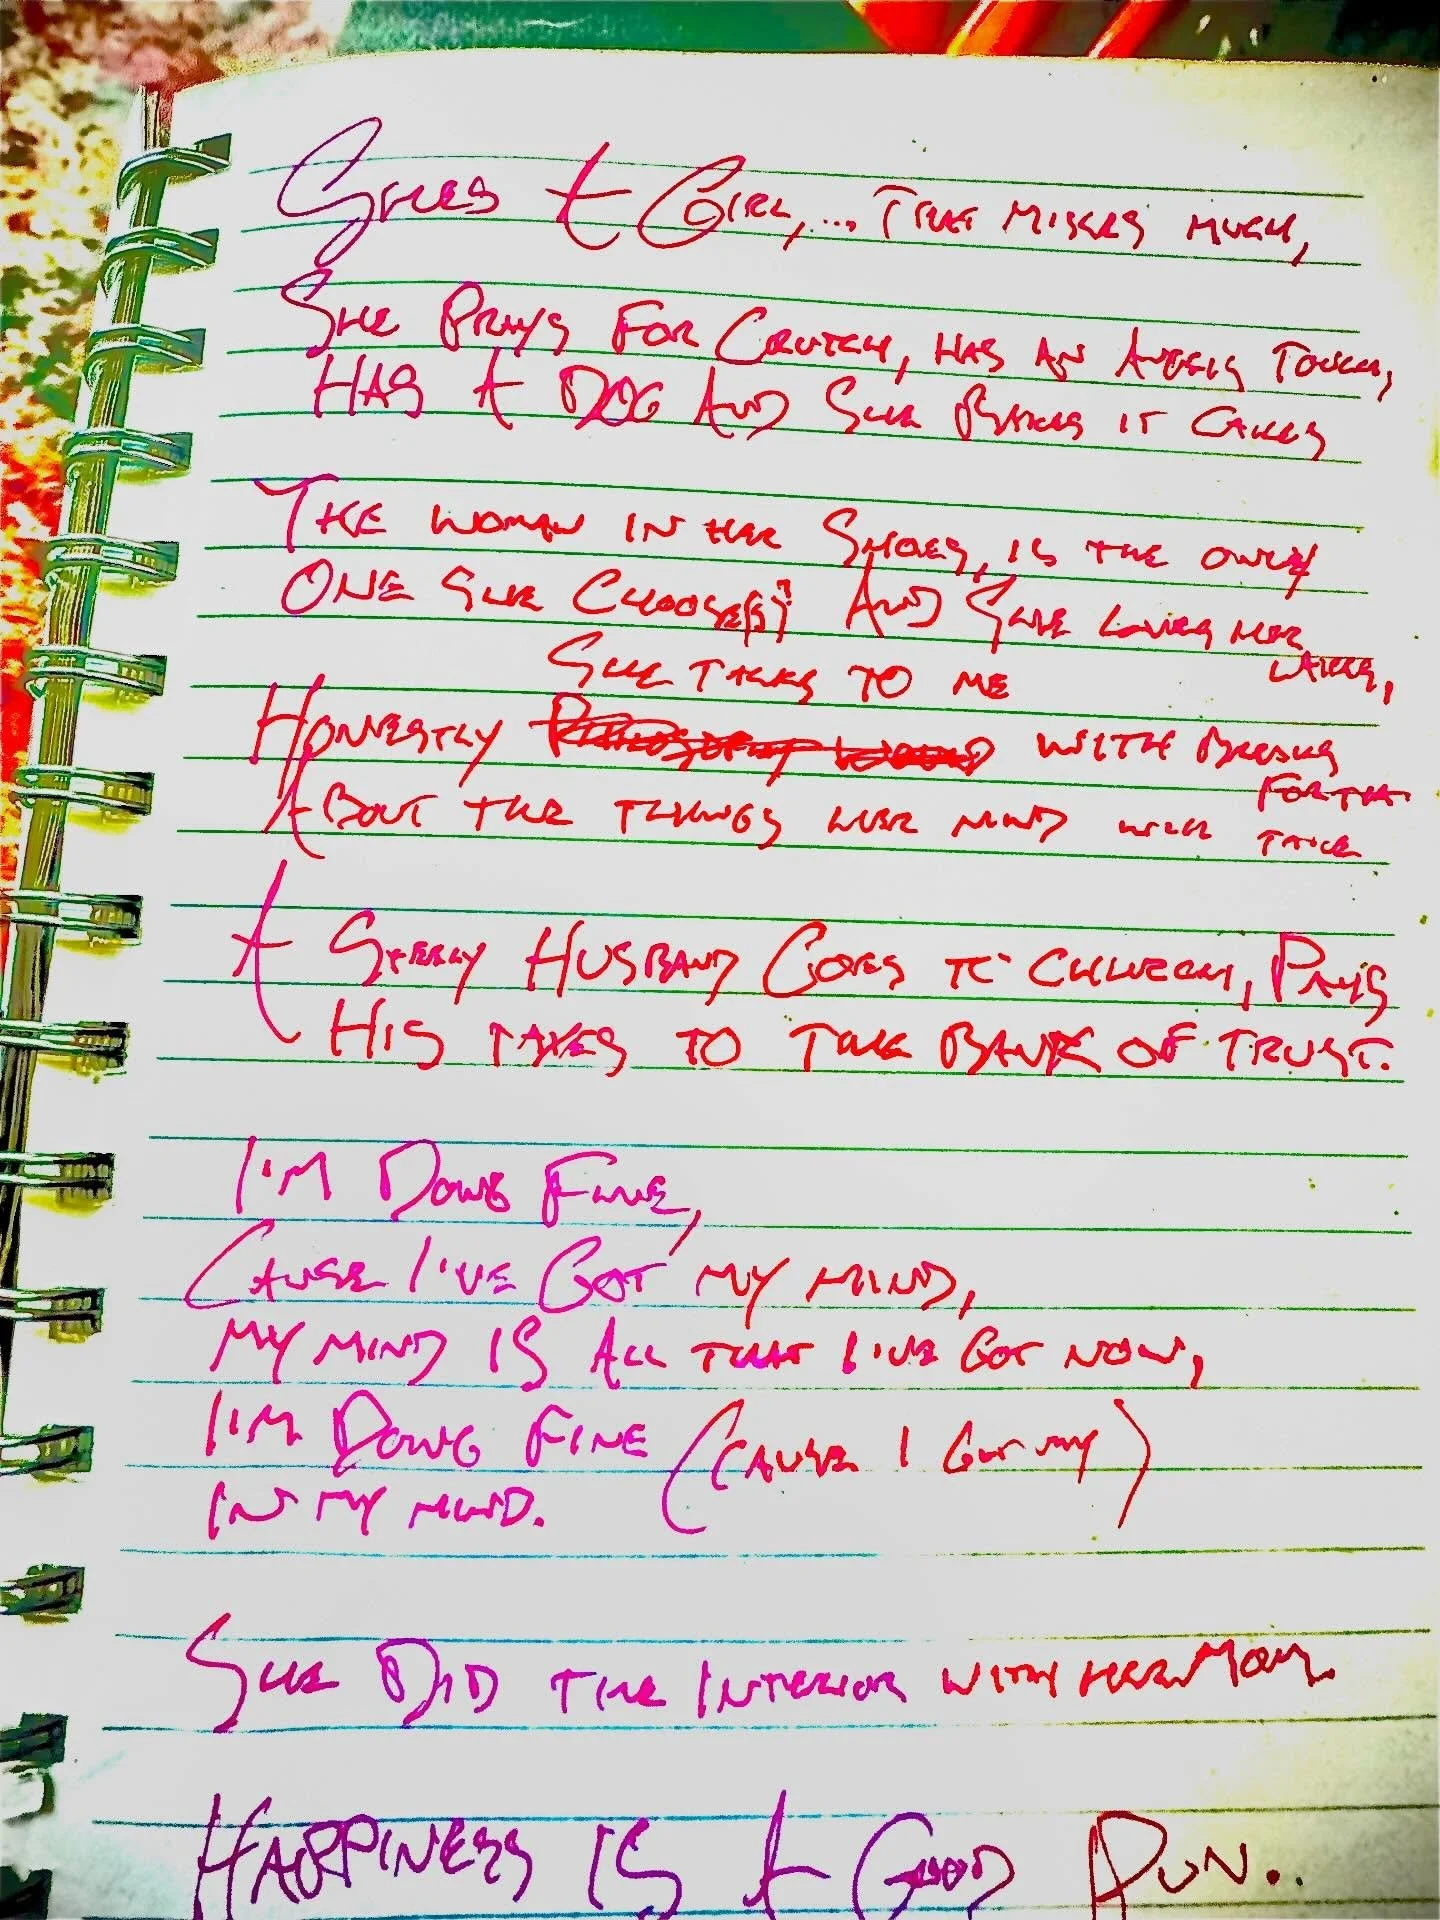 She's A Girl,... That misses much,
She Prays For Crutch, has an Angels Touch,
Has A Dog And She Bakes it Cakes
The woman in her Shoes, is the only
One She Choose(s), And She Loves her
Lakes,
She Talks to me
Honestly with Breaks
About the things her mind will
take
A Steely Husband Goes to Church, Pays
His taxes to the Bank of Trust.
I'm Doing Fine,
Cause I've Got my mind,
My mind is All that I've Got now,
I'm Doing Fine (Cause I Got my)
In my mind.
She Did the Interior with her Mom.
Happiness is A Good Run..